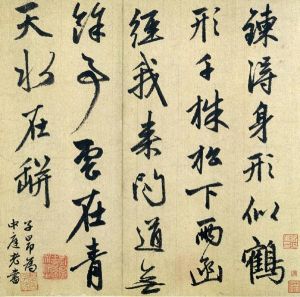 鍊得身形似鶴
形千株松下两函
經我来问道無
餘事雲在青
天水在缾
子昂為
中庭老書